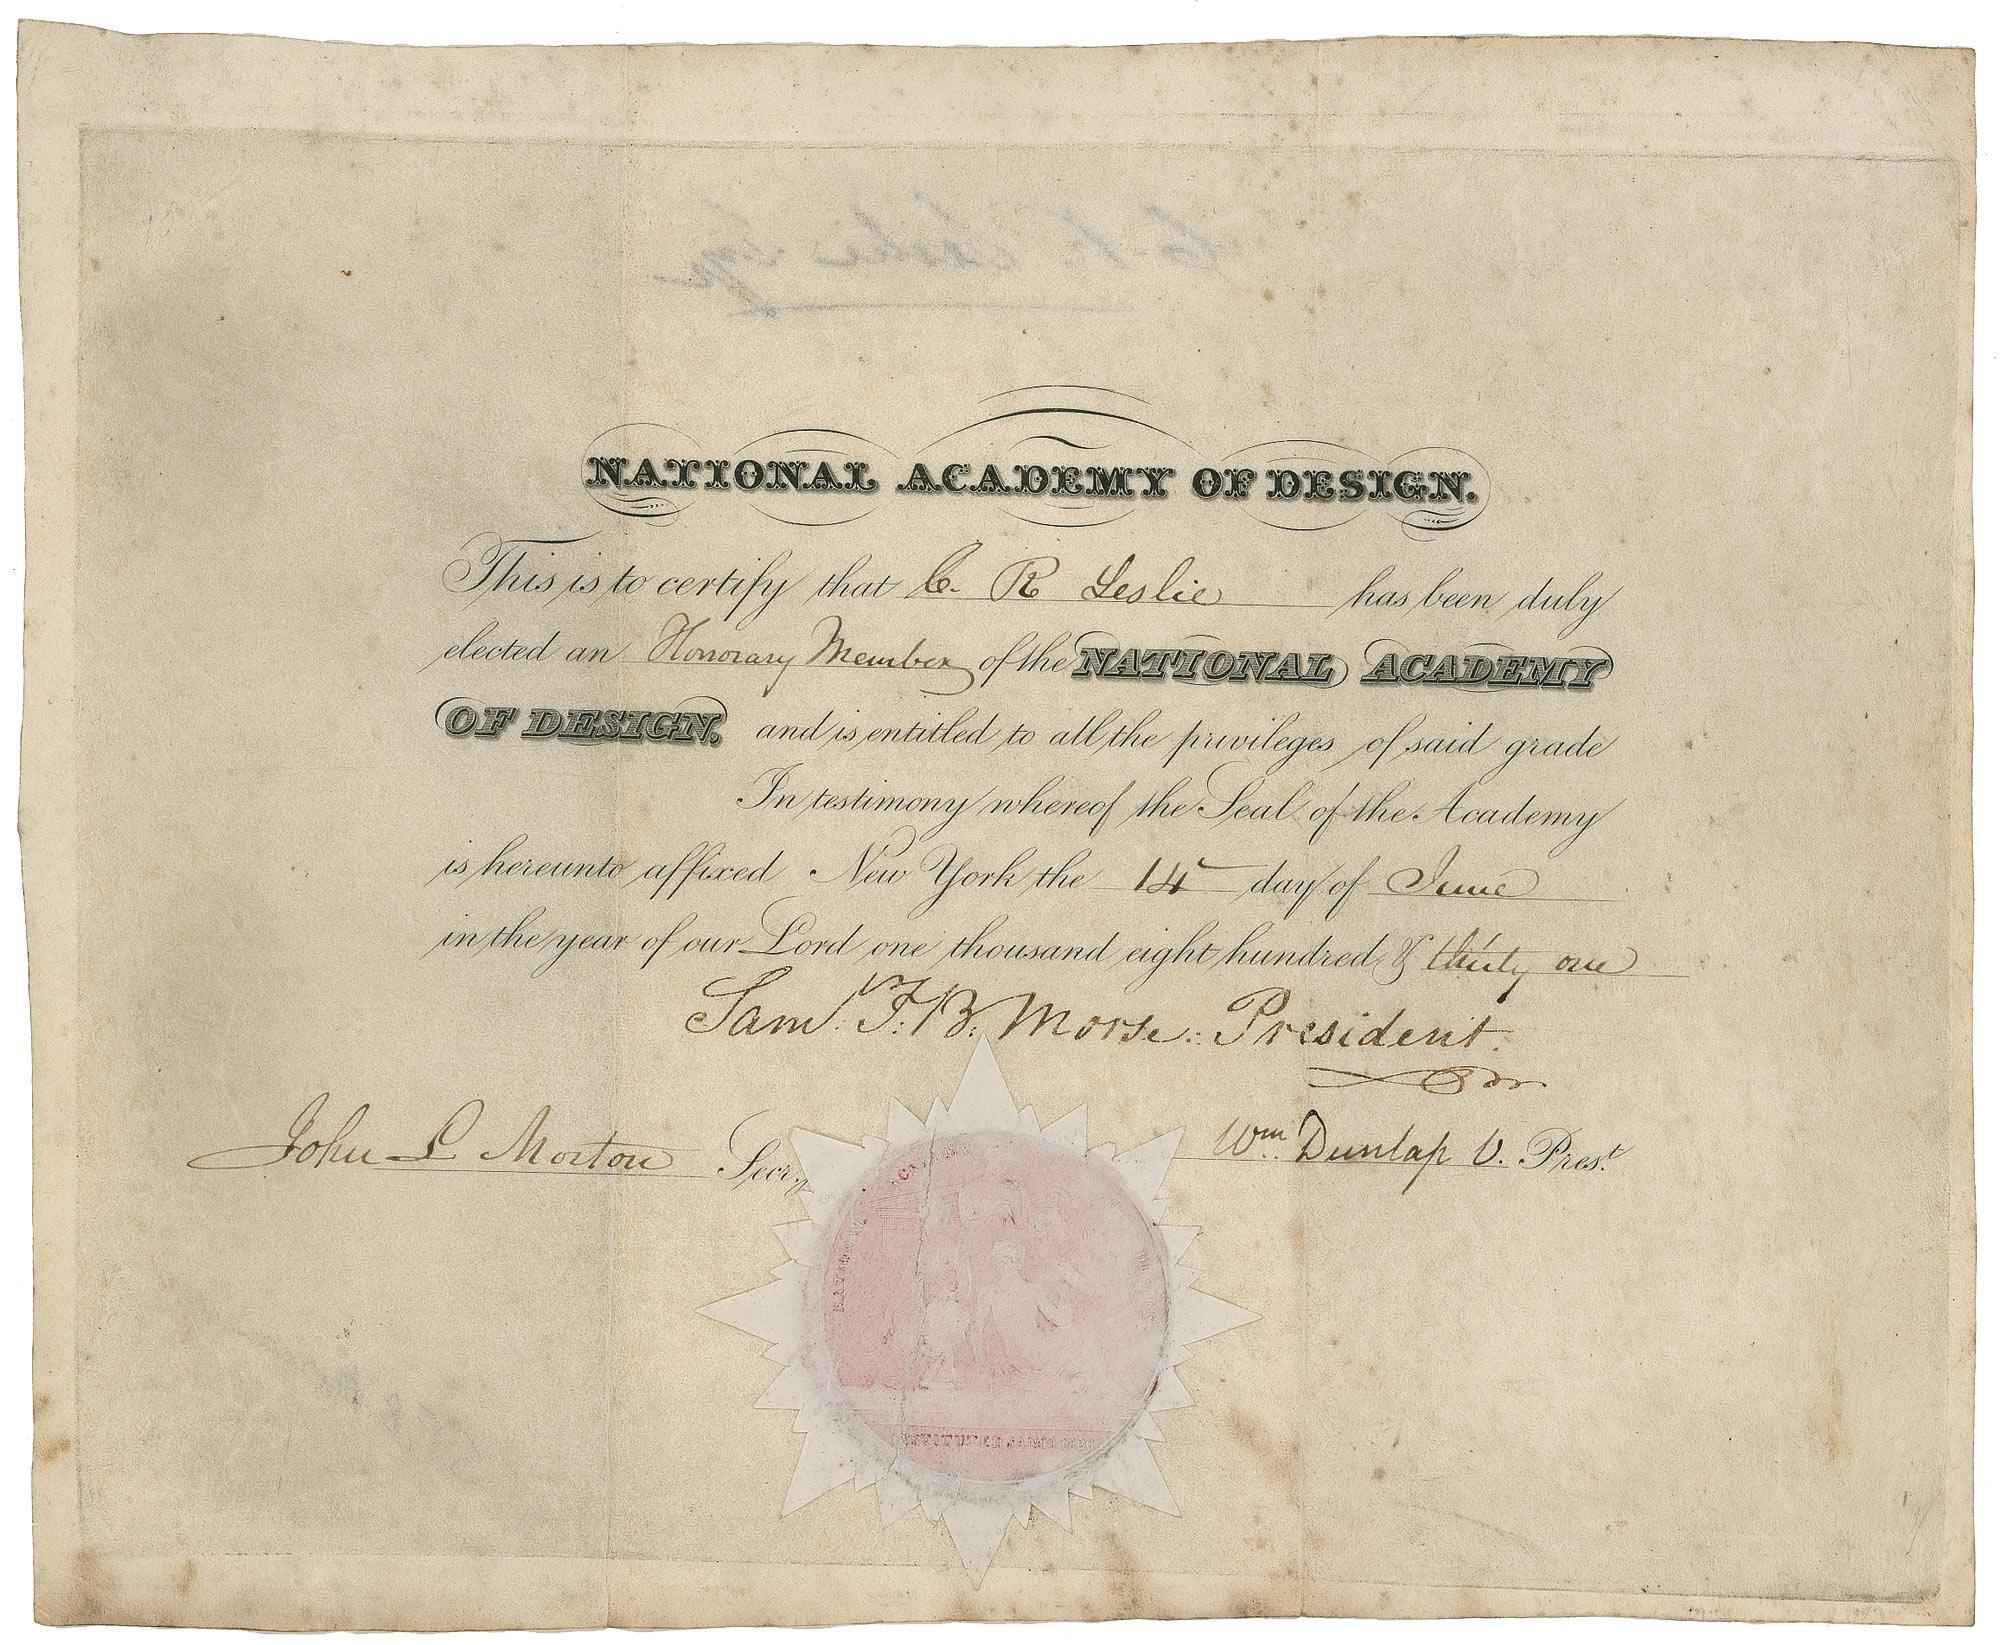 C R Leslie Esqr
NATIONAL ACADEMY OF DESIGN.
This is to certify that C. R Leslie has been duly
elected an Honorary Member of the NATIONAL ACADEMY
OF DESIGN. and is entitled to all the privileges of said grade
In testimony whereof the Seal of the Academy
is hereunto affixed New York the 14 day of June
in the year of our Lord one thousand eight hundred & thirty one
Saml. F. B. Morse. President.
John L Morton Secry
Wm. Dunlap V. Prest.
NATIONAL ACADEMY OF DESIGN